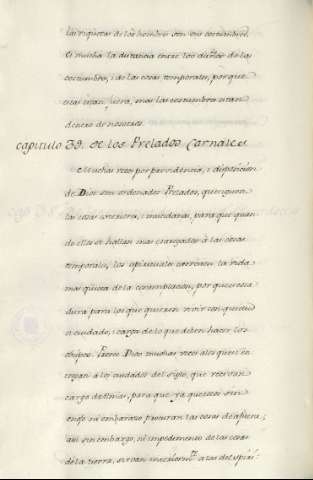 las riquezas de los hombres son sus costumbres.
Es mucha la distancia entre los daños de las
costumbres, i de las cosas temporales, porque
estas estan fuera, mas las costumbres estan
dentro de nosotros.
Capitulo 39. de los Prelados Carnales
Muchas veces por providencia, i disposicion
de Dios son ordenados Prelados, que sigan
las cosas exteriores, i mundanas, para que quan-
do ellos se hallan mas entregados à las cosas
temporales, los espirituales exerciten la vida
mas quieta de la contemplacion, por que
dura para los que quieren vivir con quietud
el cuidado, i cargo de lo que deben hacer los
Obispos. Pone Dios muchas veces
à los cuidados del siglo, que reciban
cargo de Almas, para que ya que estos sin
embarazo procuran las cosas de afuera;
asi sin embargo, ni impedimento de las cosas
de la tierra, sirvan à las del Spiri-